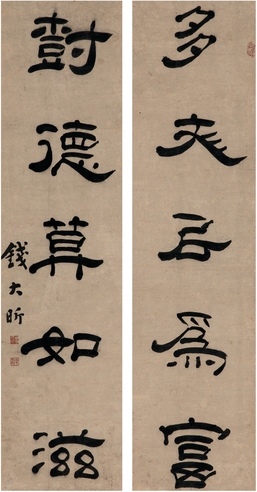 多文㠯爲富
尌德莫如滋
錢大昕